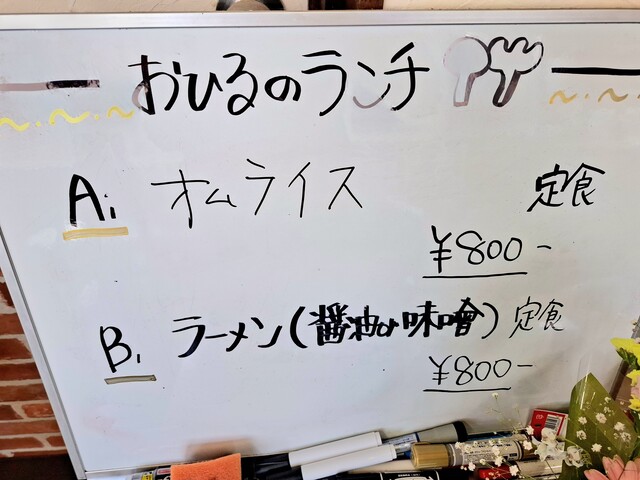 おひるのランチ
A. オムライス 定食
¥800-
B. ラーメン(醤油or味噌) 定食
¥800-